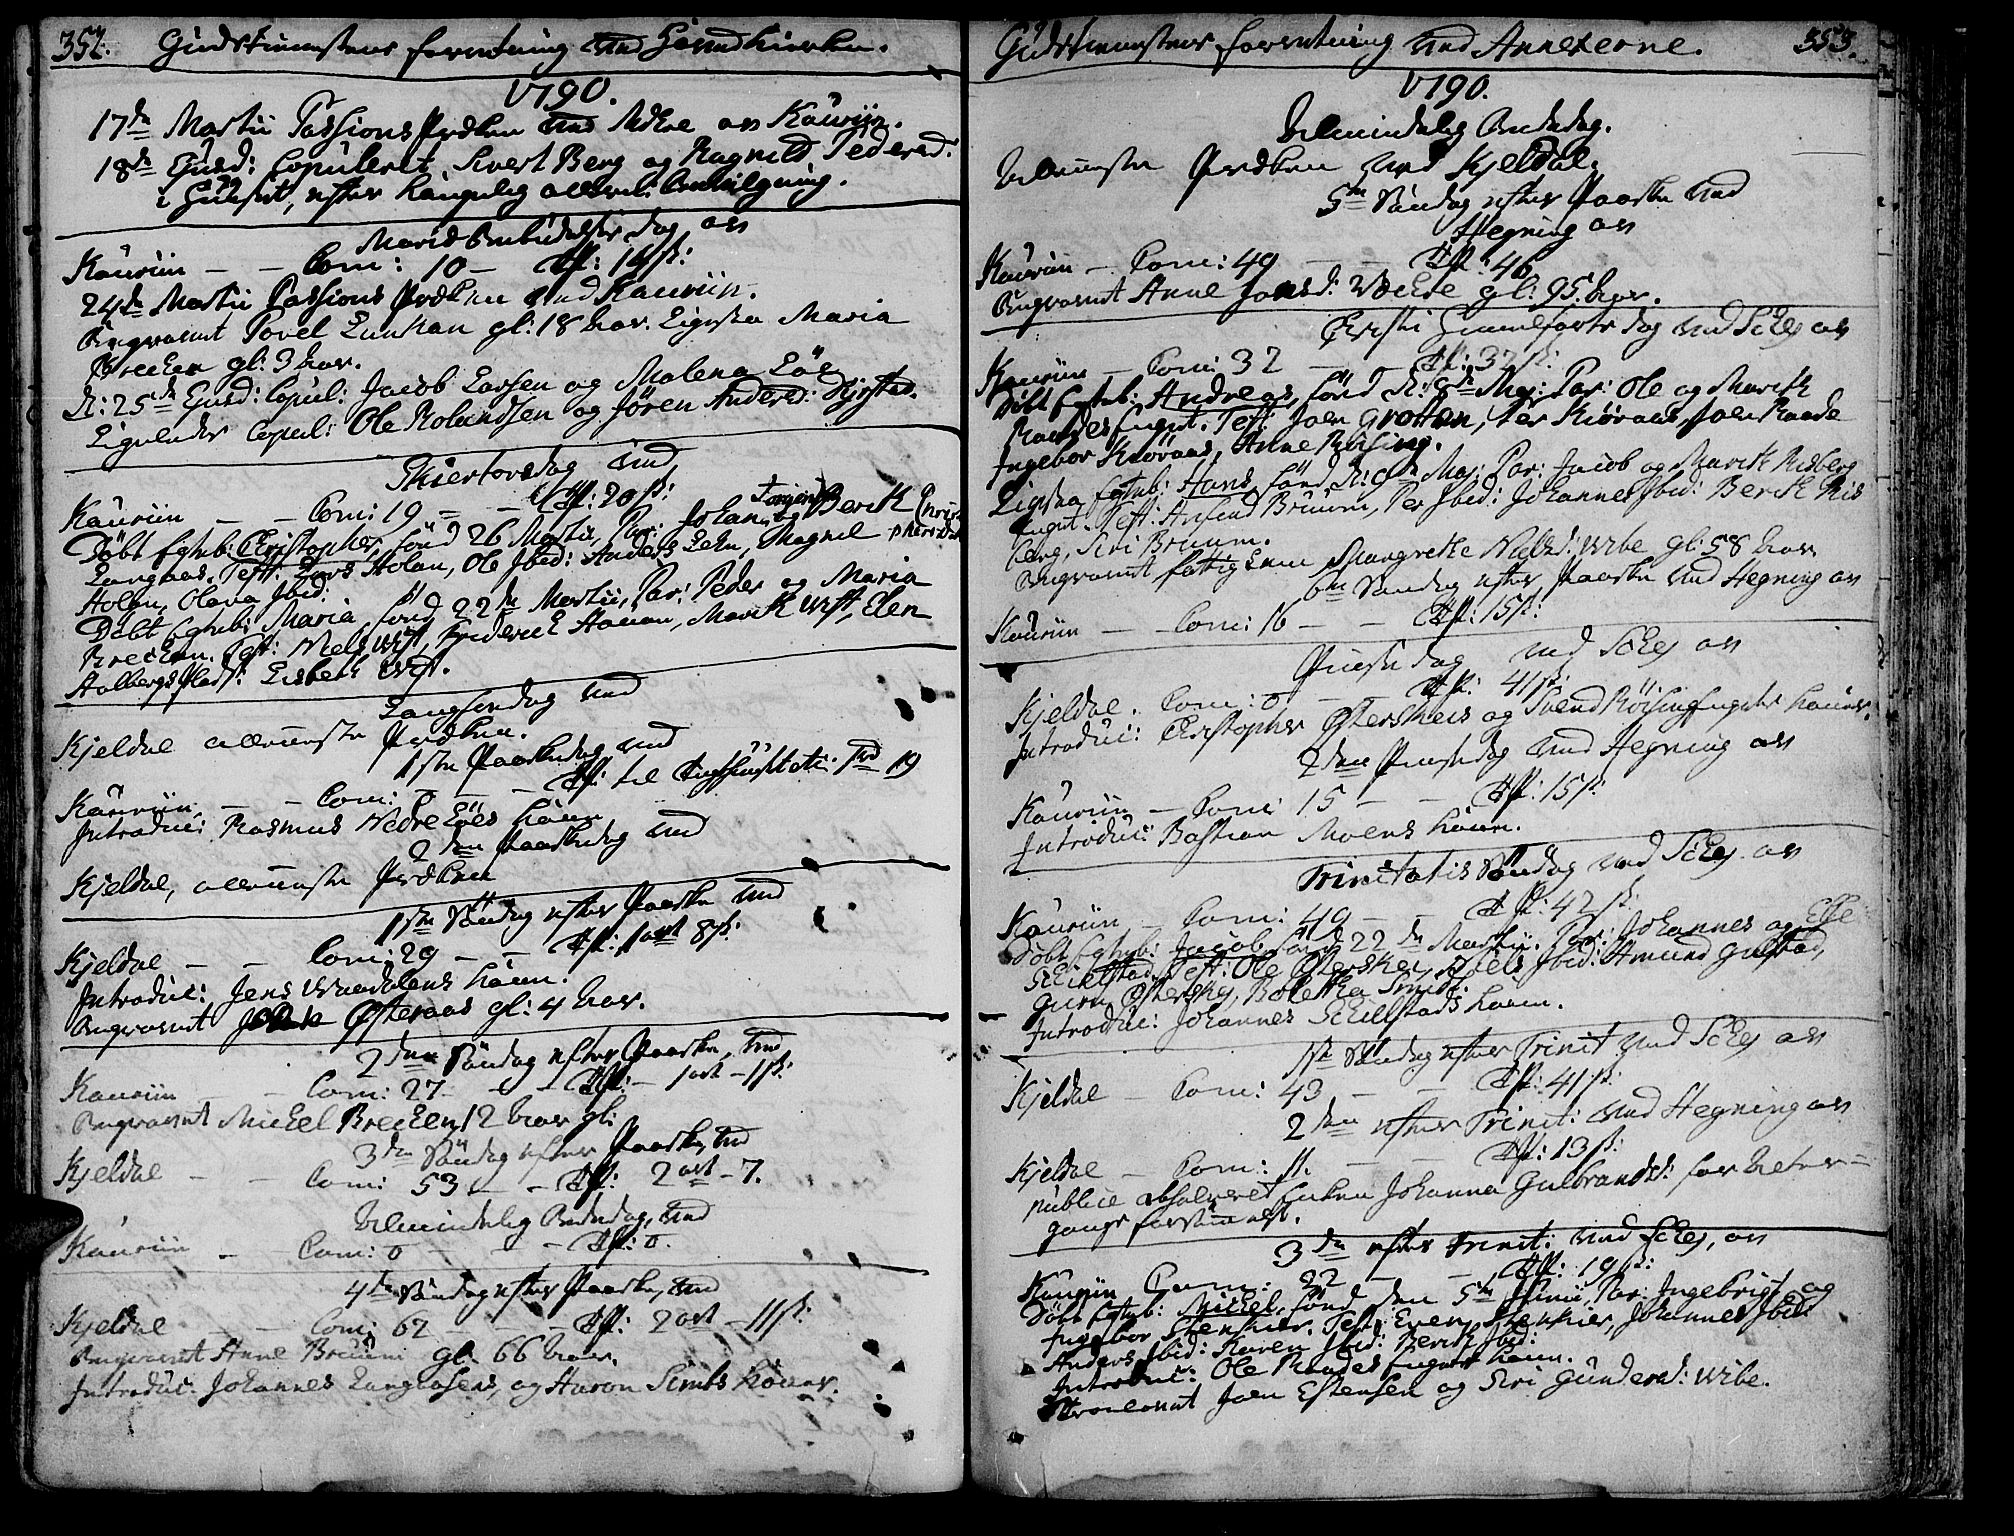 352. Gudstienestens forretning ved Hovedkirken.
1790.
17de Martii Passions Prædken ved Mdhle av Kaurin.
18de Ejusd: Copuleret Sivert Berg og Ragnild Pedersd:
i Huuset, efter kongelig allern: bevilgning.
Mariæ Bebudelses dag, av
Kaurin - - Com: 10 - Off: 14 s:
24de Martii Passions Prædken ved Kaurin.
Begravet Povel Lunkan gl: 18 Aar. Ligesaa Maria
Brecken gl: 3 Aar.
d: 25de Ejusd: Copul: Jacob Larsen og Malena Löe
Ligeledes Copul: Ole Rolandsen og Jören Andersd: Hjjstad.
Skiertorsdag ved
Kaurin - - Com: 19 - - Off: 20 s:
Döbt Egteb: Christopher, född 26 Martii, Par: Johan og Berit
Langaas. Test: Lars Holan, Ole Ibid: Anders Leen, Magnel
Holan, Olava Ibid:
Döbt Egteb: Maria född 22de Martii, Par: Peder og Maria
Brecken. Test: Niels Vist, Friderick Hanen, Marit Vist, Elen
Aalbergsplads: Lisbeth Vist.
Langfredag ved
Kjeldal alleeneste Prædken.
1ste Paaskedag ved
Kaurin - - Com: 0 - - Off: til
Introduc: Rasmus Nedre Löes kone
2den Paaskedag ved
Kjeldal, alleeneste Prædken
1ste Söndag efter Paaske ved
Kjeldal - - Com: 29 - - Off: 1 ort 8 s:
Introduc: Jens Værdalens kone.
Begravet Østeraas gl: 4 Aar.
2den Söndag efter Paaske, ved
Kaurin - - Com: 27 - - Off: - 1 ort - 1 s:
Begravet Mickel Brecken 12 Aar gl:
3die Söndag efter Paaske, ved
Kjeldal - - Com: 53 - - Off: 2 ort - 7.
Almindelig Bededag, ved
Kaurin - Com: 0 - - Off: 0.
4de Söndag efter Paaske, ved
Kjeldal - - Com: 62 - - Off: 2 ort - 11 s:
Begravet Anne Bruum gl: 66 Aar.
Introduc: Johannes Langaasens, og Haron Simts Koner.
Gudstienestens forretning ved Annexerne. 353.
1790.
Almindelig Bededag.
Alleeneste Prædken ved Kjeldal.
5te Söndag efter Paaske ved
Hegning av
Kaurin - Com: 49 - - Off: 46
Begravet Anne Jonsd: Vecke gl: 95 Aar.
Christi Himmelfarts dag ved Schej av
Kaurin - Com: 32 - - Off: 37 s:
Döbt Egteb: Andreas, född d: 8de Maj: Par: Ole og Marith
Raadesenget. Test: Joen Grotten, Per Kiöraas, Joen Raade
Ingebor Kiöraas, Anne Rösing.
Ligesaa Egteb: Hans född d: 9de Maj: Par: Jacob og Marith Risberg
Enget. Test: Arfind Bruum, Per Ibid: Johannes Ibid: Berith Ris
berg, Siri Bruum.
Begravet fattig Lem Margrethe Nielsd: Vibe gl: 58 Aar
6te Söndag efter Paaske ved Hegning av
Kaurin - - Com: 16 - - Off: 15 s:
Pinsedag ved Schej av
Kjeldal. Com: 0 - - Off: 41 s:
Introduc: Christopher Østerskeis og Svend Rösingsengets koner.
2den Pinsedag ved Hegning av
Kaurin - Com: 15 - - Off: 15 s:
Introduc: Bastian Moens kone.
Trinitatis Söndag ved Schej av
Kaurin - Com: 49 - - Off: 42 s:
Döbt Egteb: Jacob född 22de Martii. Par: Johannes og Else
Schielstad, Test: Ole Østerskej, Niels Ibid: Amund Gulstad,
Guru Østerskej, Boletha Smidt.
Introduc: Johannes Schielstads kone.
1ste Söndag efter Trinit ved Schej av
Kjeldal - Com: 43 - - Off: 41 s:
2den efter Trinit: ved Hegning av
Kjeldal - Com: 11. - - Off: 13 s:
publice absolveret Enken Johanna Gulbrandsd: for
gangs forseelse.
3die efter Trinit: ved Schej, av
Kaurin Com: 22 - - Off: 19 s:
Döbt Egteb: Mickel, född den 5te Junii Par: Ingebrigt og
Ingebor Stenkier. Test: Even Stenkier, Johannes Ibid:
Anders Ibid: Karen Ibid: Berith Ibid:
Introduc: Ole Raadesengets kone.
Trolovet Joen Estensen og Siri Gundersd: Vibe.